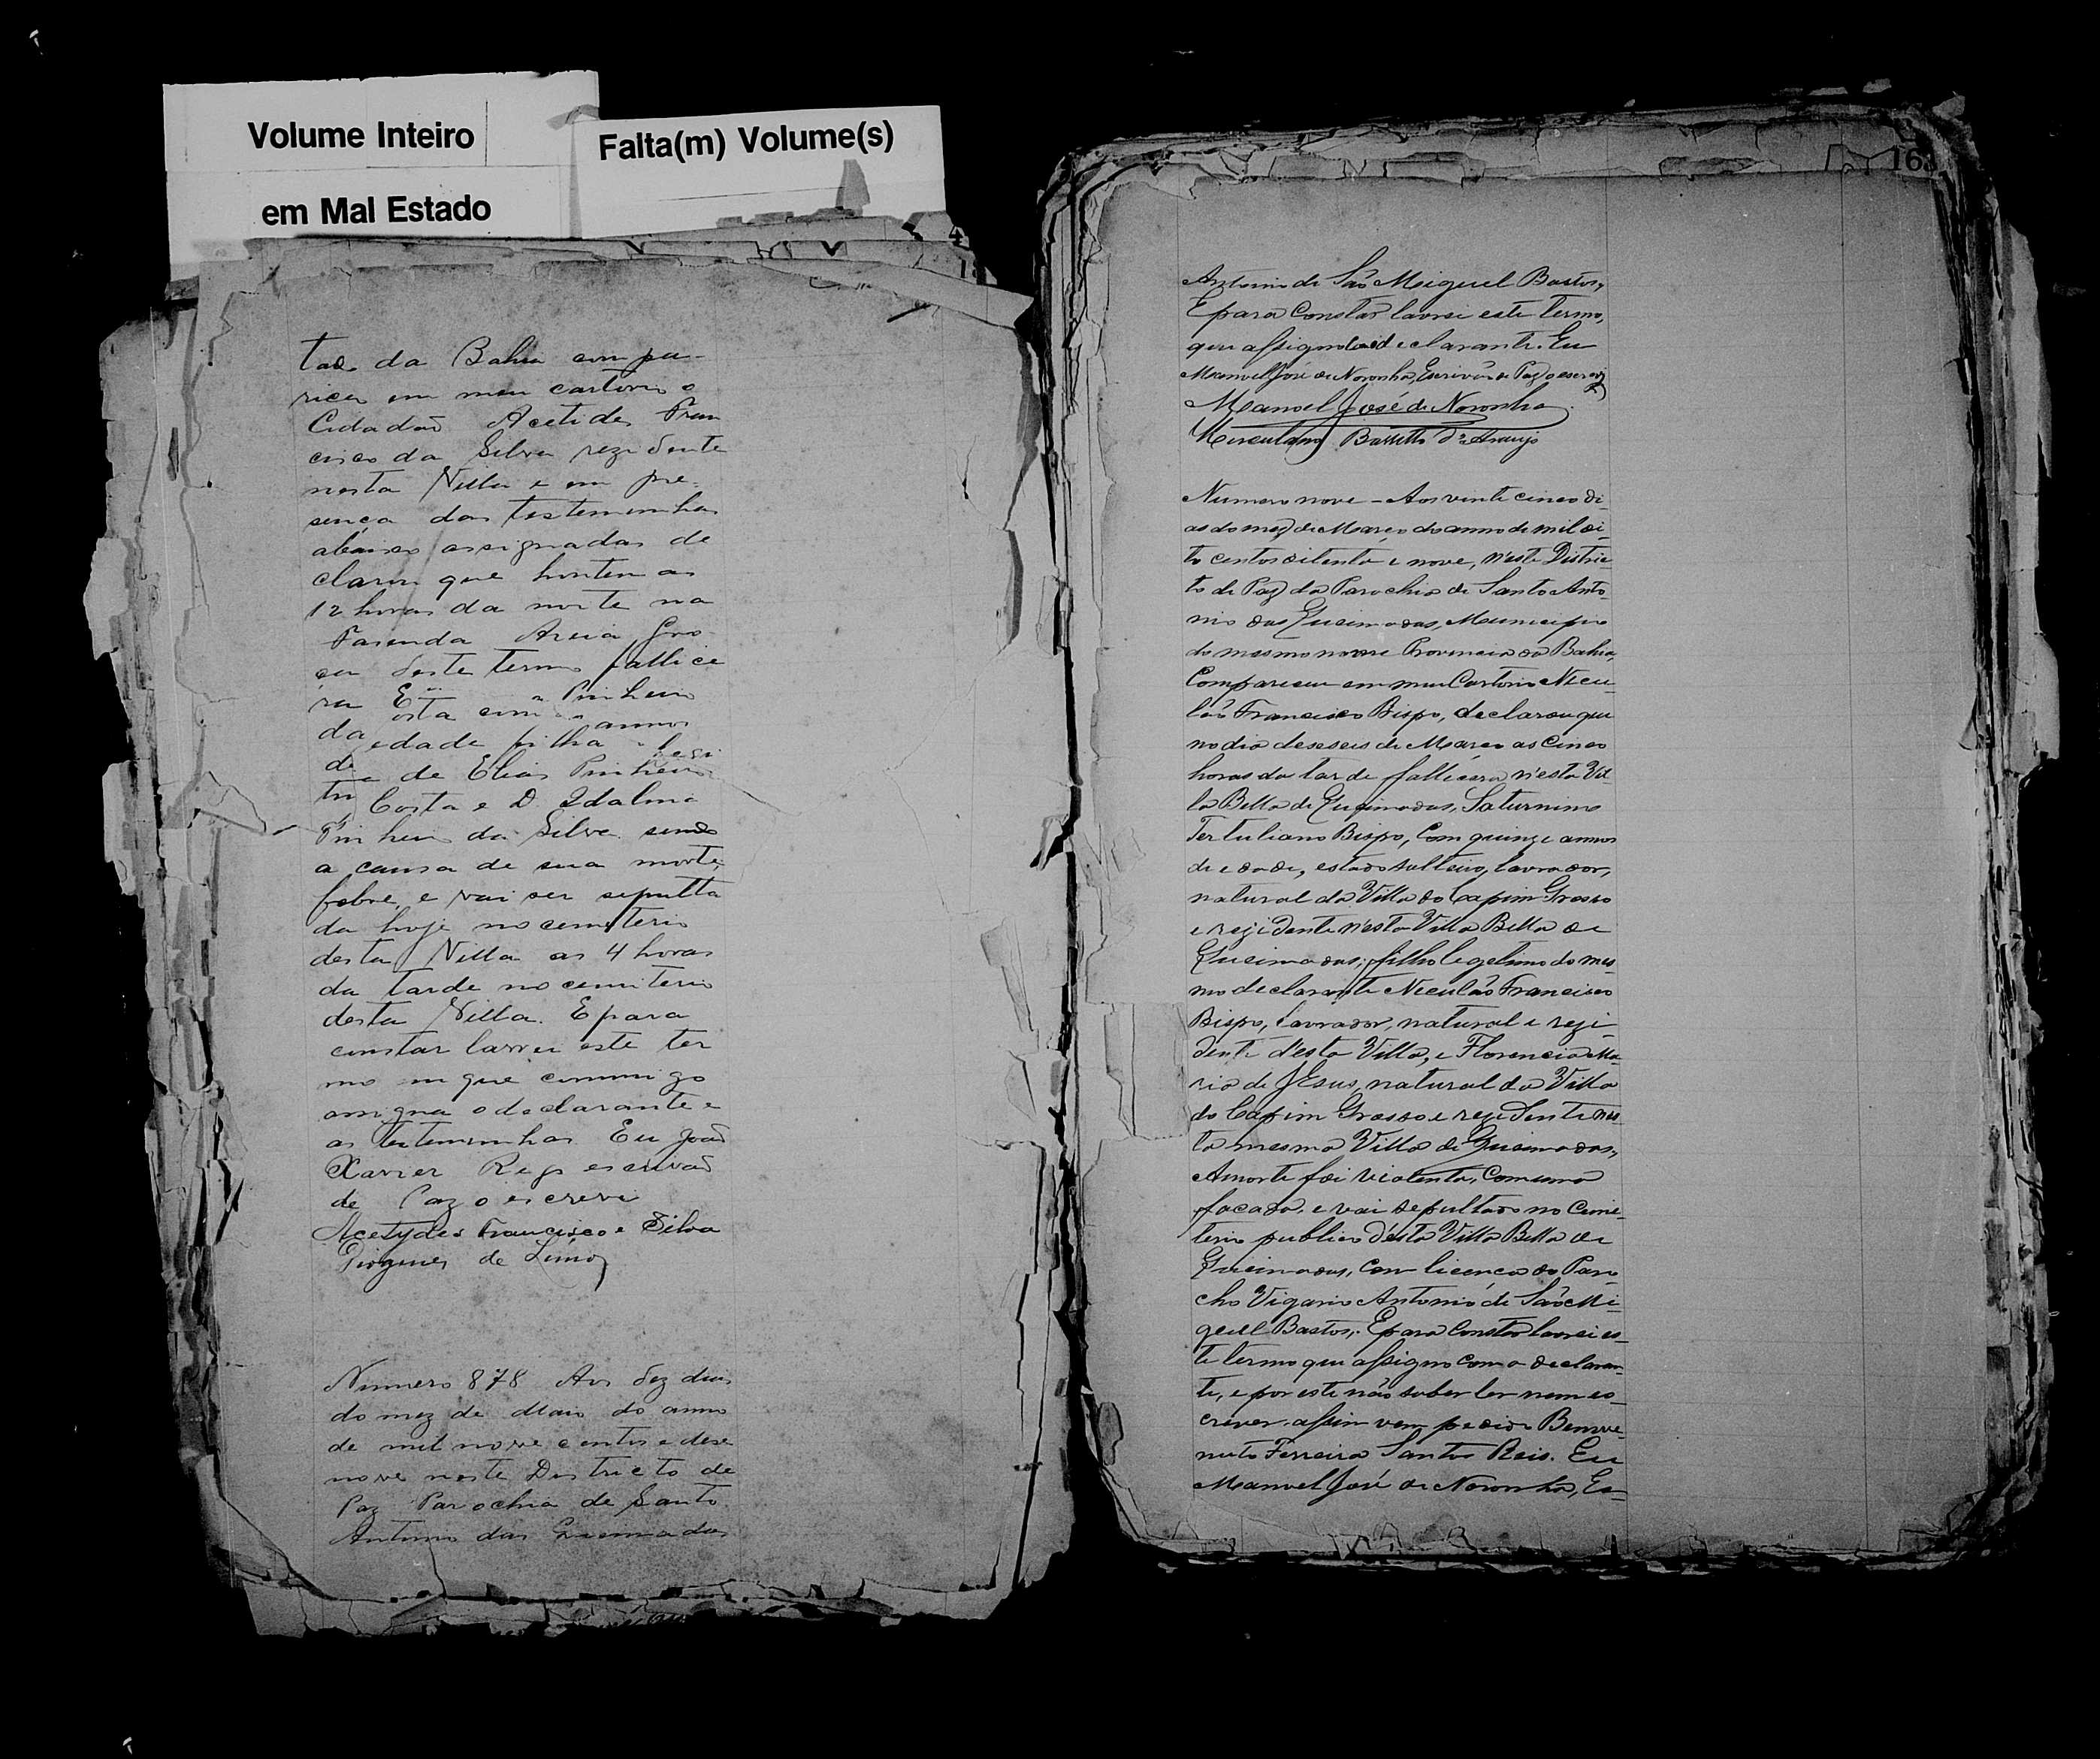 Volume Inteiro
em Mal Estado
Falta(m) Volume(s)
4
tado da Bahia compa-
ricer em meu cartorio o
Cidadão Acetides Fran
cisco da Silva rezidente
nesta Villa e em pre-
sença das testemunhas
abaixo assignadas de
clarou que hontem as
12 horas da noite na
Fasenda Areia Gro
ça deste termo fallice
ra Pinheiro
da osta com annos
de edade filha legi
tma de Elias Pinheiro
Costa e D. Idalina
Pinheiro da Silva sendo
a causa de sua morte,
febre, e vai ser sepulta
da hoje no cemiterio
desta Villa as 4 horas
da tarde no cemiterio
desta Villa. E para
constar lavrei este ter
mo em que commigo
assigna o declarante e
as testemunhas Eu João
Xavier Rego escrivão
de Paz o escrevi
Acetydes Francisco e Silva
Diogenes de
Numero 878 Aos dez dias
do mez de Maio do anno
de mil nove centos e dese
nove neste Districto de
Paz Parochia de Santo
Antonio das Queimadas
163
Antonio de São Meiguel Bastos,
E para Constar lavrei este termo,
que assigno declarante. Eu
Manoel José de Noronha, Escrivão de Paz o escrevy
Manoel José de Noronha
Herculano Barretto de Araujo
Numero nove - Aos vinte cinco di-
as do mez de Março do anno de mil oi-
to centos oitenta e nove, n'este Distric-
to de Paz da Parochia de Santo Anto-
nio das Queimadas, Municipio
do mesmo nome Provincia da Bahia,
Compareceu em meu Cartorio Nicu-
láo Francisco Bispo, declarou que
no dia deseseis de Março as Cinco
horas da tarde fallicera n'esta Vil-
la Bella de Queimadas, Saturnino
Tertuliano Bispo, Com quinze annos
de edade, estado solteiro, lavrador,
natural da Villa do Capim Grosso
e rezidente n'esta Villa Bella de
Queimadas; filho legetimo do mes-
mo declarante Niculáo Francisco
Bispo, lavrador, natural e rezi-
dente d'esta Villa, e Florencia Ma-
ria de Jesus, natural da Villa
do Capim Grosso e rezidente nes-
ta mesma Villa de Queimadas,
A morte foi violenta, Com uma
facada, e vai sepultado no Cimi-
terio publico d'esta Villa Bella de
Queimadas, Com licença do Paro-
cho Vigario Antonio de São Mi-
guel Bastos; E para Constar lavrei es-
te termo que assigno com o declaran-
te, e por este não saber ler nem es-
crever assim vem pedido Benve-
nuto Ferreira Santos Reis. Eu
Manoel José de Noronha, Es-